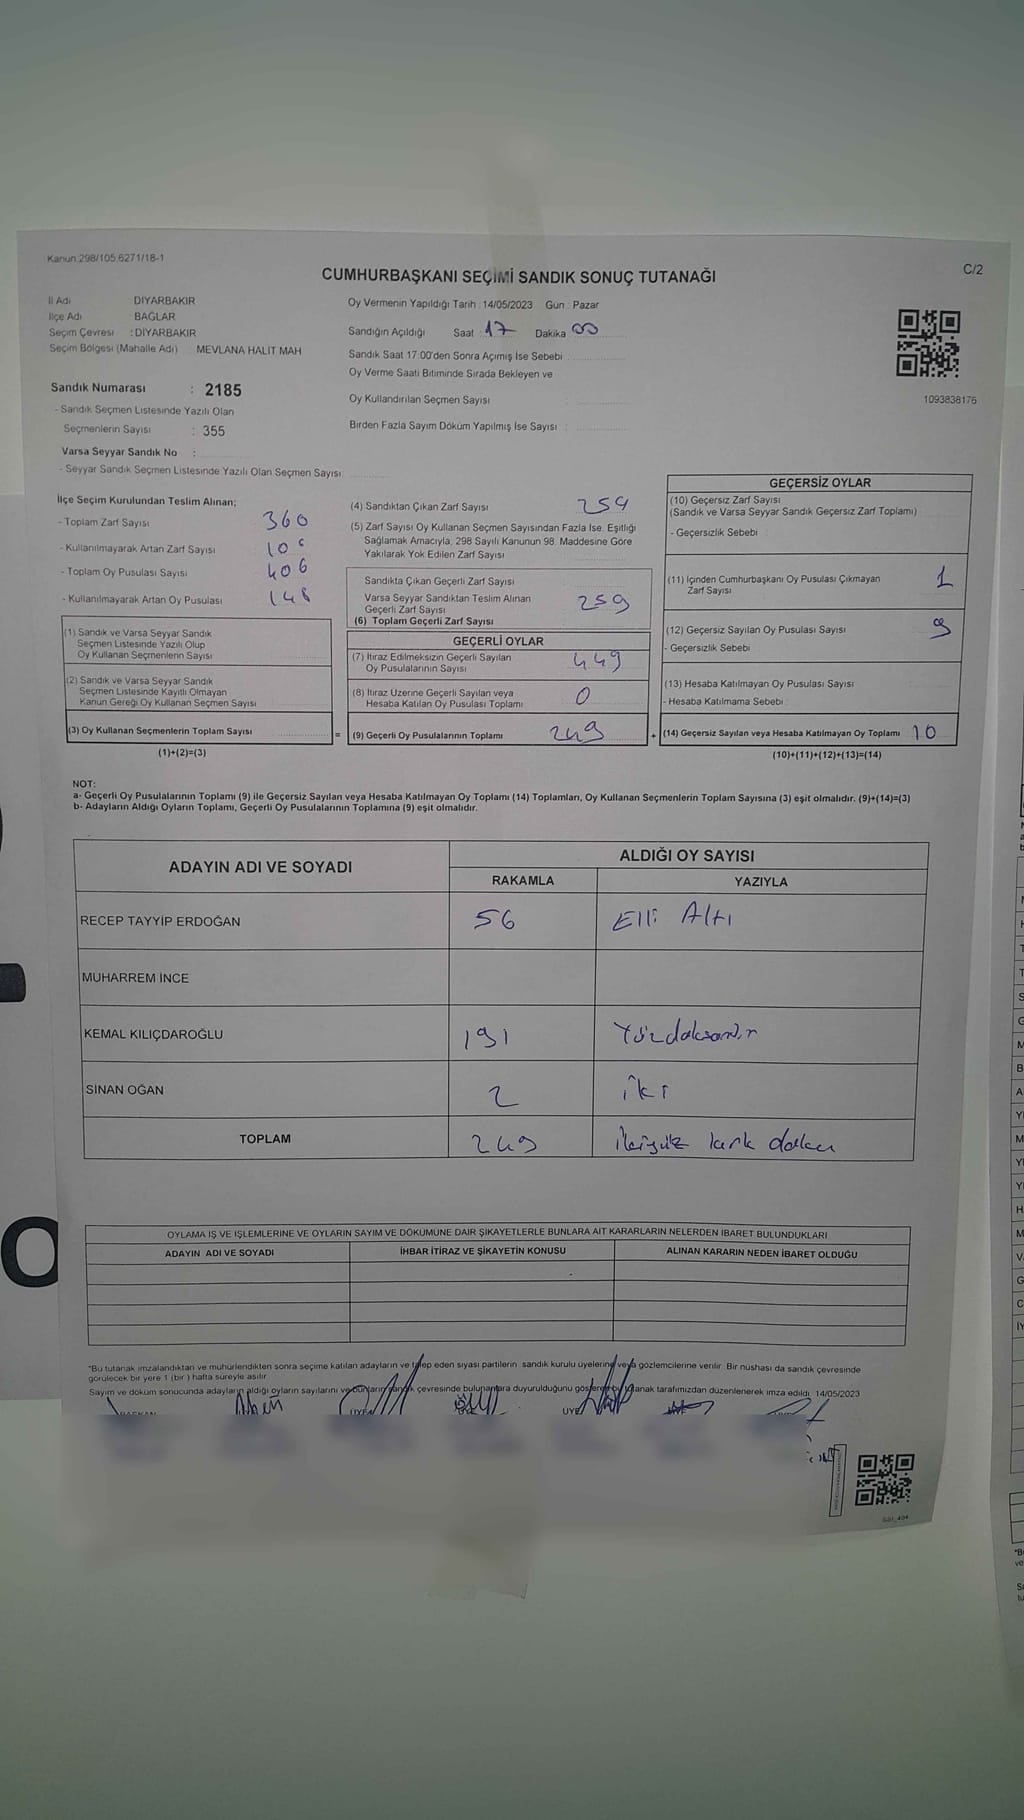 Kanun 298/105 6271/18-1
C/2
CUMHURBAŞKANI SEÇİMİ SANDIK SONUÇ TUTANAĞI
İl Adı : DİYARBAKIR
İlçe Adı : BAĞLAR
Seçim Çevresi : DİYARBAKIR
Seçim Bölgesi (Mahalle Adı) : MEVLANA HALİT MAH
Oy Vermenin Yapıldığı Tarih : 14/05/2023 Gün : Pazar
Sandığın Açıldığı Saat 17 Dakika 00
Sandık Saat 17:00'den Sonra Açımış İse Sebebi :
Oy Verme Saati Bitiminde Sırada Bekleyen ve
Oy Kullandırılan Seçmen Sayısı :
Birden Fazla Sayım Döküm Yapılmış İse Sayısı :
1093838176
Sandık Numarası : 2185
- Sandık Seçmen Listesinde Yazılı Olan
Seçmenlerin Sayısı : 355
Varsa Seyyar Sandık No :
- Seyyar Sandık Seçmen Listesinde Yazılı Olan Seçmen Sayısı
İlçe Seçim Kurulundan Teslim Alınan;
- Toplam Zarf Sayısı 360
- Kullanılmayarak Artan Zarf Sayısı
- Toplam Oy Pusulası Sayısı 406
- Kullanılmayarak Artan Oy Pusulası
(1) Sandık ve Varsa Seyyar Sandık
Seçmen Listesinde Yazılı Olup
Oy Kullanan Seçmenlerin Sayısı
(2) Sandık ve Varsa Seyyar Sandık
Seçmen Listesinde Kayıtlı Olmayan
Kanun Gereği Oy Kullanan Seçmen Sayısı
(3) Oy Kullanan Seçmenlerin Toplam Sayısı
(1)+(2)=(3)
(4) Sandıktan Çıkan Zarf Sayısı 259
(5) Zarf Sayısı Oy Kullanan Seçmen Sayısından Fazla İse, Eşitliği
Sağlamak Amacıyla, 298 Sayılı Kanunun 98. Maddesine Göre
Yakılarak Yok Edilen Zarf Sayısı
Sandıkta Çıkan Geçerli Zarf Sayısı
Varsa Seyyar Sandıktan Teslim Alınan
Geçerli Zarf Sayısı 259
(6) Toplam Geçerli Zarf Sayısı
GEÇERLİ OYLAR
(7) İtiraz Edilmeksizin Geçerli Sayılan
Oy Pusulalarının Sayısı 449
(8) İtiraz Üzerine Geçerli Sayılan veya
Hesaba Katılan Oy Pusulası Toplamı 0
= (9) Geçerli Oy Pusulalarının Toplamı 249 +
GEÇERSİZ OYLAR
(10) Geçersiz Zarf Sayısı
(Sandık ve Varsa Seyyar Sandık Geçersiz Zarf Toplamı)
- Geçersizlik Sebebi :
(11) İçinden Cumhurbaşkanı Oy Pusulası Çıkmayan
Zarf Sayısı 1
(12) Geçersiz Sayılan Oy Pusulası Sayısı 9
- Geçersizlik Sebebi
(13) Hesaba Katılmayan Oy Pusulası Sayısı
- Hesaba Katılmama Sebebi :
(14) Geçersiz Sayılan veya Hesaba Katılmayan Oy Toplamı 10
(10)+(11)+(12)+(13)=(14)
NOT:
a- Geçerli Oy Pusulalarının Toplamı (9) ile Geçersiz Sayılan veya Hesaba Katılmayan Oy Toplamı (14) Toplamları, Oy Kullanan Seçmenlerin Toplam Sayısına (3) eşit olmalıdır. (9)+(14)=(3)
b- Adayların Aldığı Oyların Toplamı, Geçerli Oy Pusulalarının Toplamına (9) eşit olmalıdır.
ADAYIN ADI VE SOYADI
ALDIĞI OY SAYISI
RAKAMLA YAZIYLA
RECEP TAYYİP ERDOĞAN 56 Elli Altı
MUHARREM İNCE
KEMAL KILIÇDAROĞLU 191 Yüzdoksanbir
SİNAN OĞAN 2 iki
TOPLAM 249 ikiyüz kırk dokuz
OYLAMA İŞ VE İŞLEMLERİNE VE OYLARIN SAYIM VE DÖKÜMÜNE DAİR ŞİKAYETLERLE BUNLARA AİT KARARLARIN NELERDEN İBARET BULUNDUKLARI
ADAYIN ADI VE SOYADI İHBAR İTİRAZ VE ŞİKAYETİN KONUSU ALINAN KARARIN NEDEN İBARET OLDUĞU
*Bu tutanak imzalandıktan ve mühürlendikten sonra seçime katılan adayların ve talep eden siyasi partilerin sandık kurulu üyelerine veya gözlemcilerine verilir. Bir nüshası da sandık çevresinde
görülecek bir yere 1 (bir) hafta süreyle asılır
Sayım ve döküm sonucunda adayların aldığı oyların sayılarını ve bunların sandık çevresinde bulunanlara duyurulduğunu gösteren bu tutanak tarafımızdan düzenlenerek imza edildi 14/05/2023
BAŞKAN ÜYE ÜYE